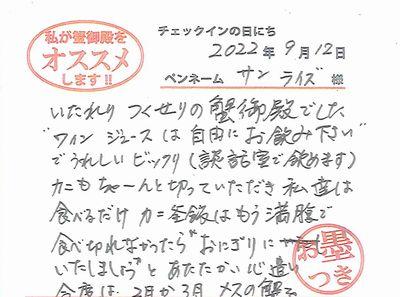 私が蟹御殿を
オススメ
します!!
チェックインの日にち
2022年9月12日
ペンネーム サンライズ 様
いたれり つくせりの蟹御殿でした
"ワイン ジュースは自由にお飲み下さい"
でうれしいビックリ(談話室で飲めます)
カニもちゃーんと切っていただき 私達は
食べるだけ カニ釜飯はもう満腹で
食べ切れなかったら"おにぎりに
いたしましょう"とあたたかい心遣い
今度は 2月か3月 メスの蟹で
お墨
つき